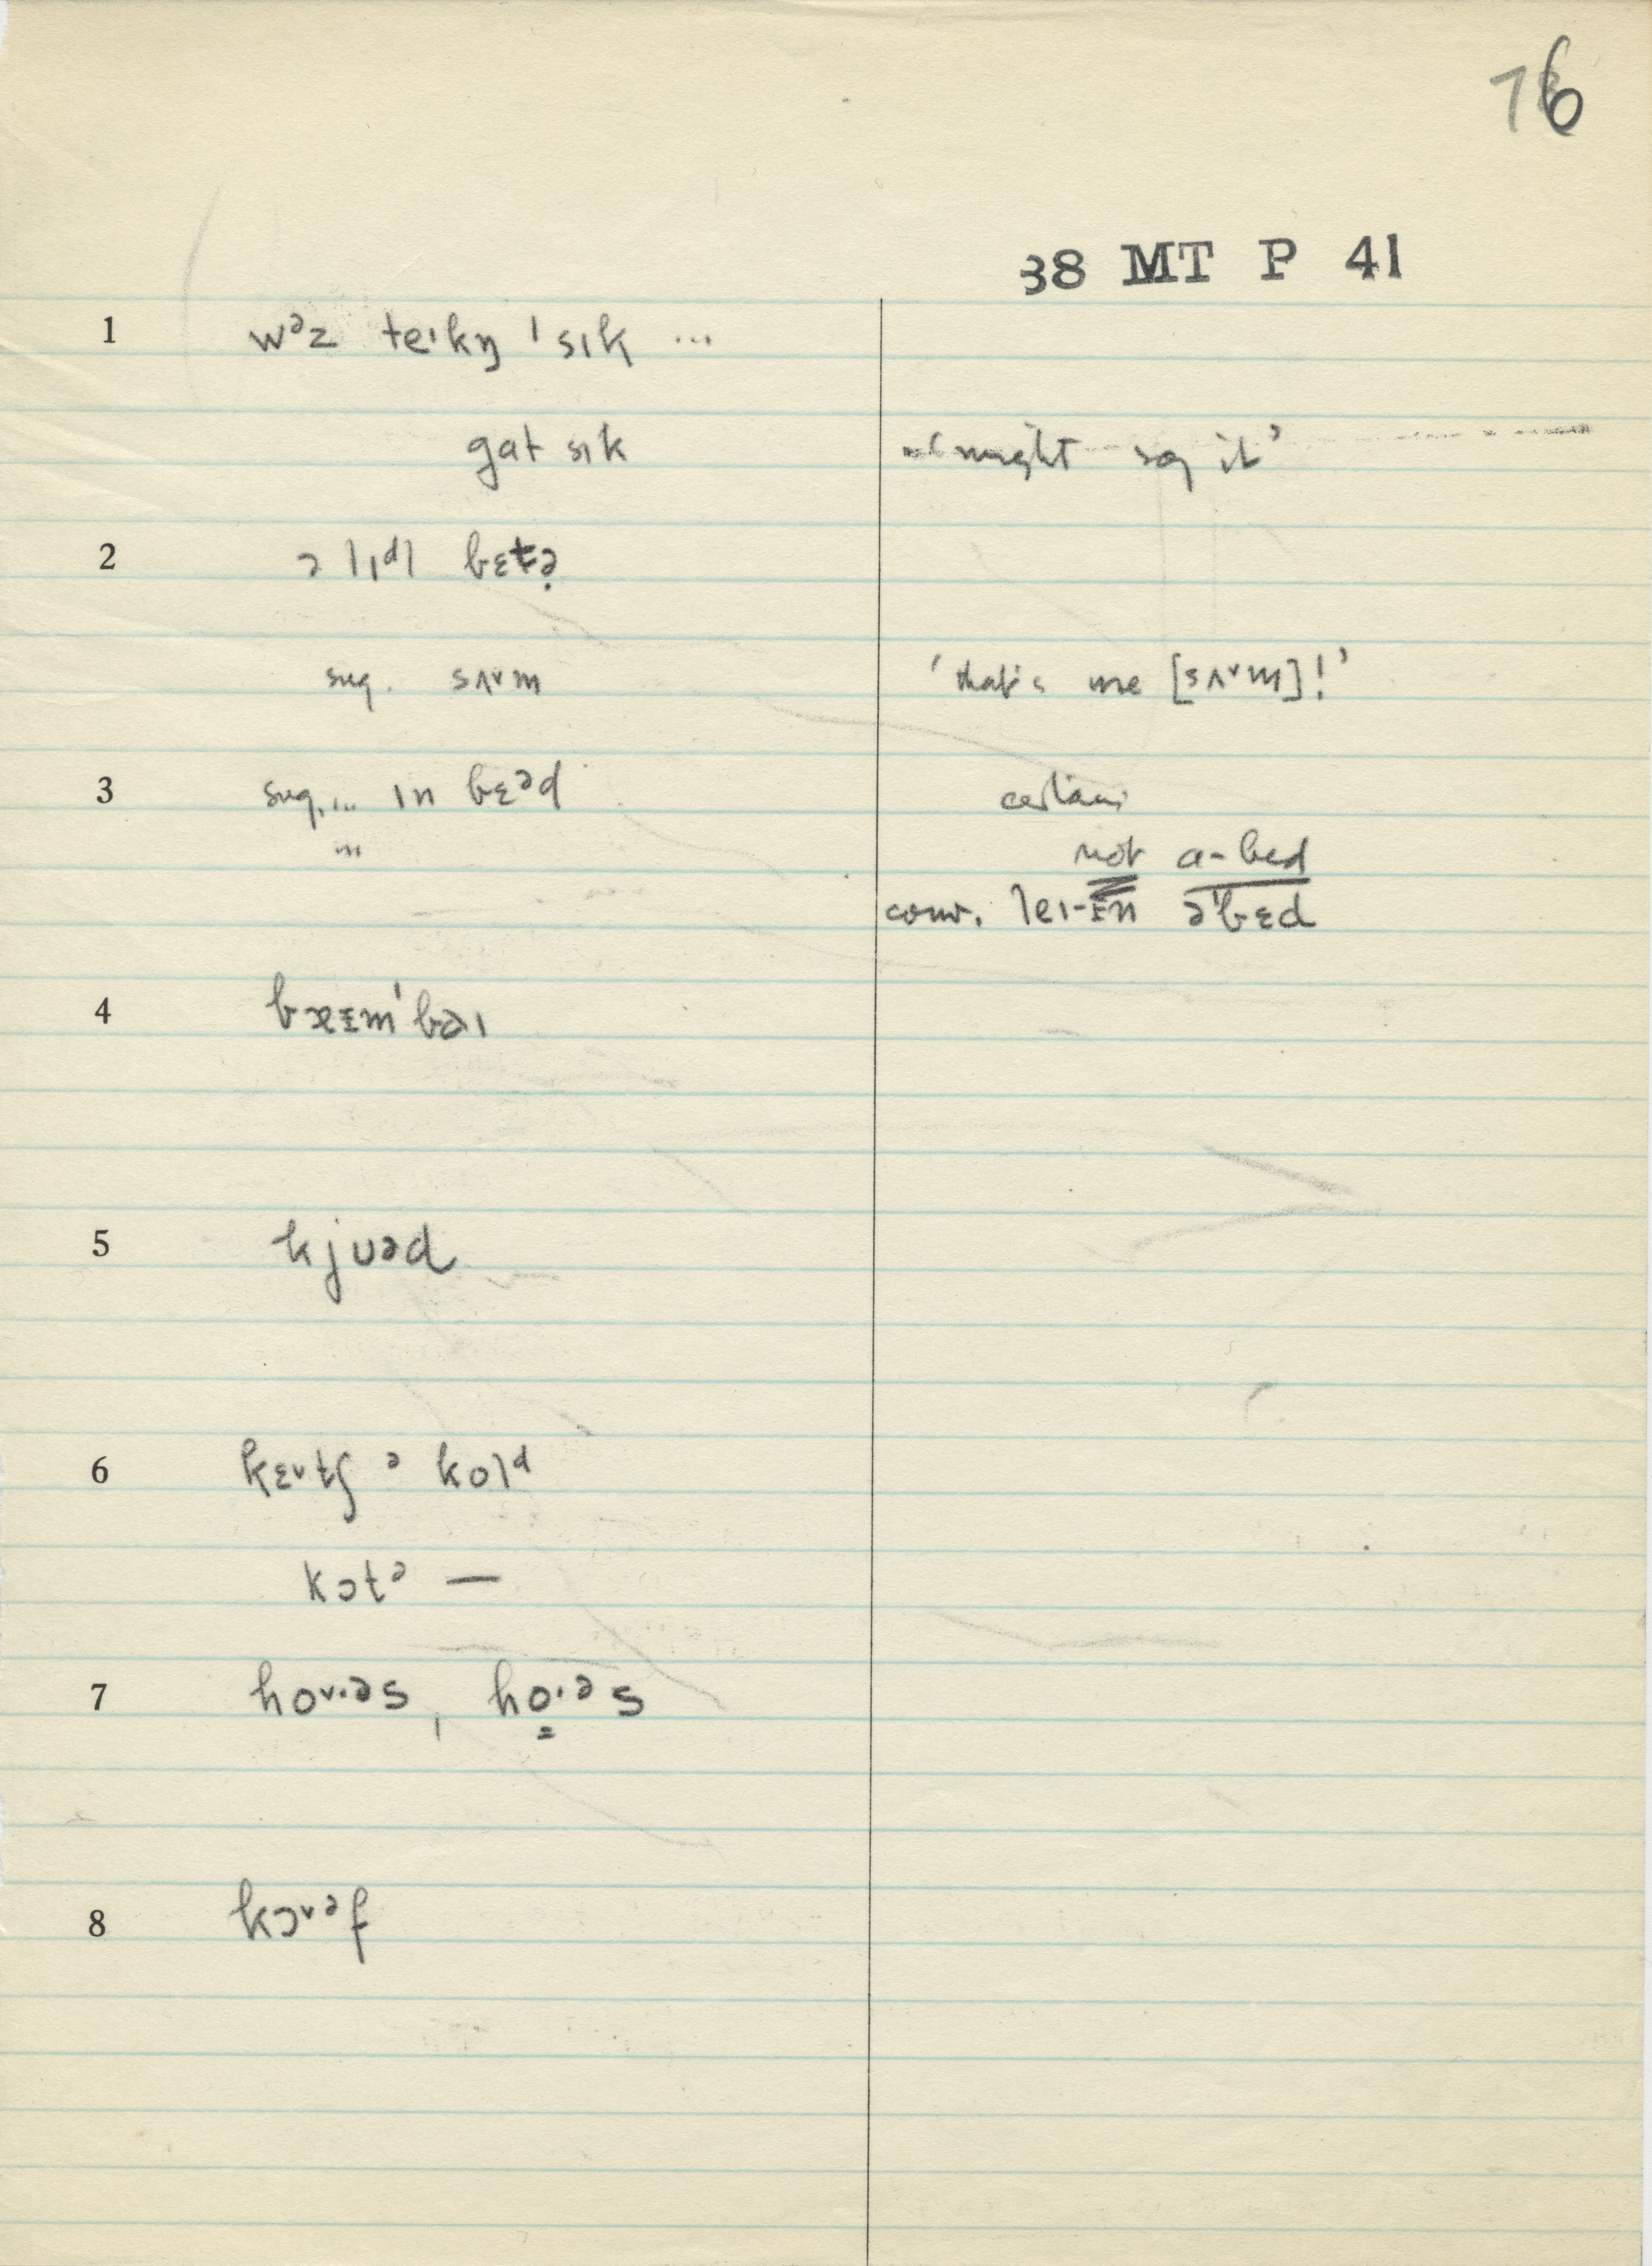 76
38 MT P 41
1 wᵊz teɪkŋ ˈsɪk ...
gat sɪk ‘might say it’
2 ə lɪᵈl bɛt̬ə̣
sug. sʌ˅m ‘that's me [sʌ˅m]!’
3 sug. ... ɪn bɛᵊd certain
... not a-bed
conv. leɪ-ɪn əˈbɛd
4 bæɛmˈbəɪ
5 kjʊəd
6 kɛ˅tʃ ᵊ kolᵈ
kɔt̬ᵊ —
7 ho˅·əs, ho̳·ᵊs
8 kɔ˅ᵊf